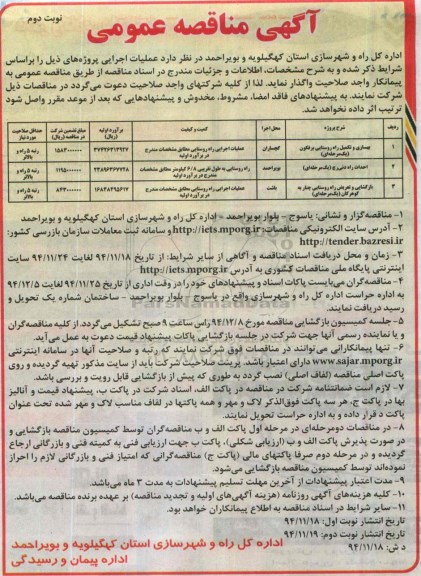 نوبت دوم
آگهی مناقصه عمومی
اداره کل راه و شهرسازی استان کهگیلویه و بویراحمد در نظر دارد عملیات اجرایی پروژه‌های ذیل را براساس
شرایط ذکر شده و به شرح مشخصات، اطلاعات و جزئیات مندرج در اسناد مناقصه از طریق مناقصه عمومی به
پیمانکار واجد صلاحیت واگذار نماید. لذا از کلیه شرکتهای واجد صلاحیت دعوت می‌گردد در مناقصات ذیل
شرکت نمایند. به پیشنهادهای فاقد امضا، مشروط، مخدوش و پیشنهادهایی که بعد از موعد مقرر واصل شود
ترتیب اثر داده نخواهد شد.
ردیف شرح پروژه محل اجرا کمیت و کیفیت برآورد اولیه (ریال) مبلغ تضمین شرکت در مناقصه (ریال) حداقل صلاحیت مورد نیاز
۱ بهسازی و تکمیل راه روستایی (یک‌مرحله‌ای) گچساران عملیات اجرایی راه روستایی مطابق مشخصات مندرج در برآورد اولیه رتبه ۵ راه و بالاتر
۲ احداث راه (یک‌مرحله‌ای) بویراحمد راه روستایی به طول تقریبی ۶/۸ کیلومتر مطابق مشخصات مندرج در برآورد اولیه رتبه ۵ راه و بالاتر
۳ بازگشایی و تعریض راه روستایی چنار به (یک‌مرحله‌ای) باشت عملیات اجرایی راه روستایی مطابق مشخصات مندرج در برآورد اولیه رتبه ۵ راه و بالاتر
۱- مناقصه‌گزار و نشانی: یاسوج - بلوار بویراحمد - اداره کل راه و شهرسازی استان کهگیلویه و بویراحمد
۲- آدرس سایت الکترونیکی مناقصات: http://iets.mporg.ir و سامانه ثبت معاملات سازمان بازرسی کشور:
http://tender.bazresi.ir
۳- زمان و محل دریافت اسناد مناقصه و آگاهی از سایر شرایط: از تاریخ ۹۴/۱۱/۱۸ لغایت ۹۴/۱۱/۲۴ سایت
اینترنتی پایگاه ملی مناقصات کشوری به آدرس http://iets.mporg.ir
۴- مناقصه‌گران می‌بایست پاکات اسناد و پیشنهادهای خود را در وقت اداری از تاریخ ۹۴/۱۱/۲۵ لغایت ۹۴/۱۲/۵
به اداره حراست اداره کل راه و شهرسازی واقع در یاسوج - بلوار بویراحمد - ساختمان شماره یک تحویل و
رسید دریافت نمایند.
۵- جلسه کمیسیون بازگشایی مناقصه مورخ ۹۴/۱۲/۸ راس ساعت ۹ صبح تشکیل می‌گردد. از کلیه مناقصه‌گران
و یا نماینده رسمی آنها جهت شرکت در جلسه بازگشایی پاکات پیشنهاد قیمت دعوت به عمل می‌آید.
۶- تنها پیمانکارانی می‌توانند در مناقصات فوق شرکت نمایند که رتبه و صلاحیت آنها در سامانه اینترنتی
www.sajar.mporg.ir دارای اعتبار باشد. پرینت صلاحیت شرکت باید از سایت مذکور تهیه گردیده و روی
پاکت اصلی مناقصه (لفاف اصلی) نصب گردد به طوری که پیش از بازگشایی قابل رویت و بررسی باشد.
۷- لازم است ضمانتنامه شرکت در مناقصه در پاکت الف، اسناد شرکت در پاکت ب، پیشنهاد قیمت و آنالیز
بها در پاکت ج، هر سه پاکت فوق‌الذکر لاک و مهر و همه پاکتها در لفاف مناسب لاک و مهر شده تحت عنوان
پاکت د قرار داده و به اداره حراست تحویل نمایند.
۸- در مناقصات دومرحله‌ای در مرحله اول پاکت الف و ب مناقصه‌گران توسط کمیسیون مناقصه بازگشایی و
در صورت پذیرش پاکت الف و ب (ارزیابی شکلی)، پاکت ب جهت ارزیابی فنی به کمیته فنی و بازرگانی ارجاع
گردیده و در مرحله دوم صرفا پاکتهای مالی (پاکت ج) مناقصه‌گرانی که امتیاز فنی و بازرگانی لازم را احراز
نموده‌اند توسط کمیسیون مناقصه بازگشایی می‌شود.
۹- مدت اعتبار پیشنهادات از آخرین مهلت تسلیم پیشنهادات به مدت ۳ ماه می‌باشد.
۱۰- کلیه هزینه‌های آگهی روزنامه (هزینه آگهی‌های اولیه و تجدید مناقصه) بر عهده برنده مناقصه می‌باشد.
۱۱- سایر شرایط در اسناد مناقصه به اطلاع پیمانکاران خواهد بود.
تاریخ انتشار نوبت اول: ۹۴/۱۱/۱۸
تاریخ انتشار نوبت دوم: ۹۴/۱۱/۱۹
د ش: ۹۴/۱۱/۱۸
اداره کل راه و شهرسازی استان کهگیلویه و بویراحمد
اداره پیمان و رسیدگی